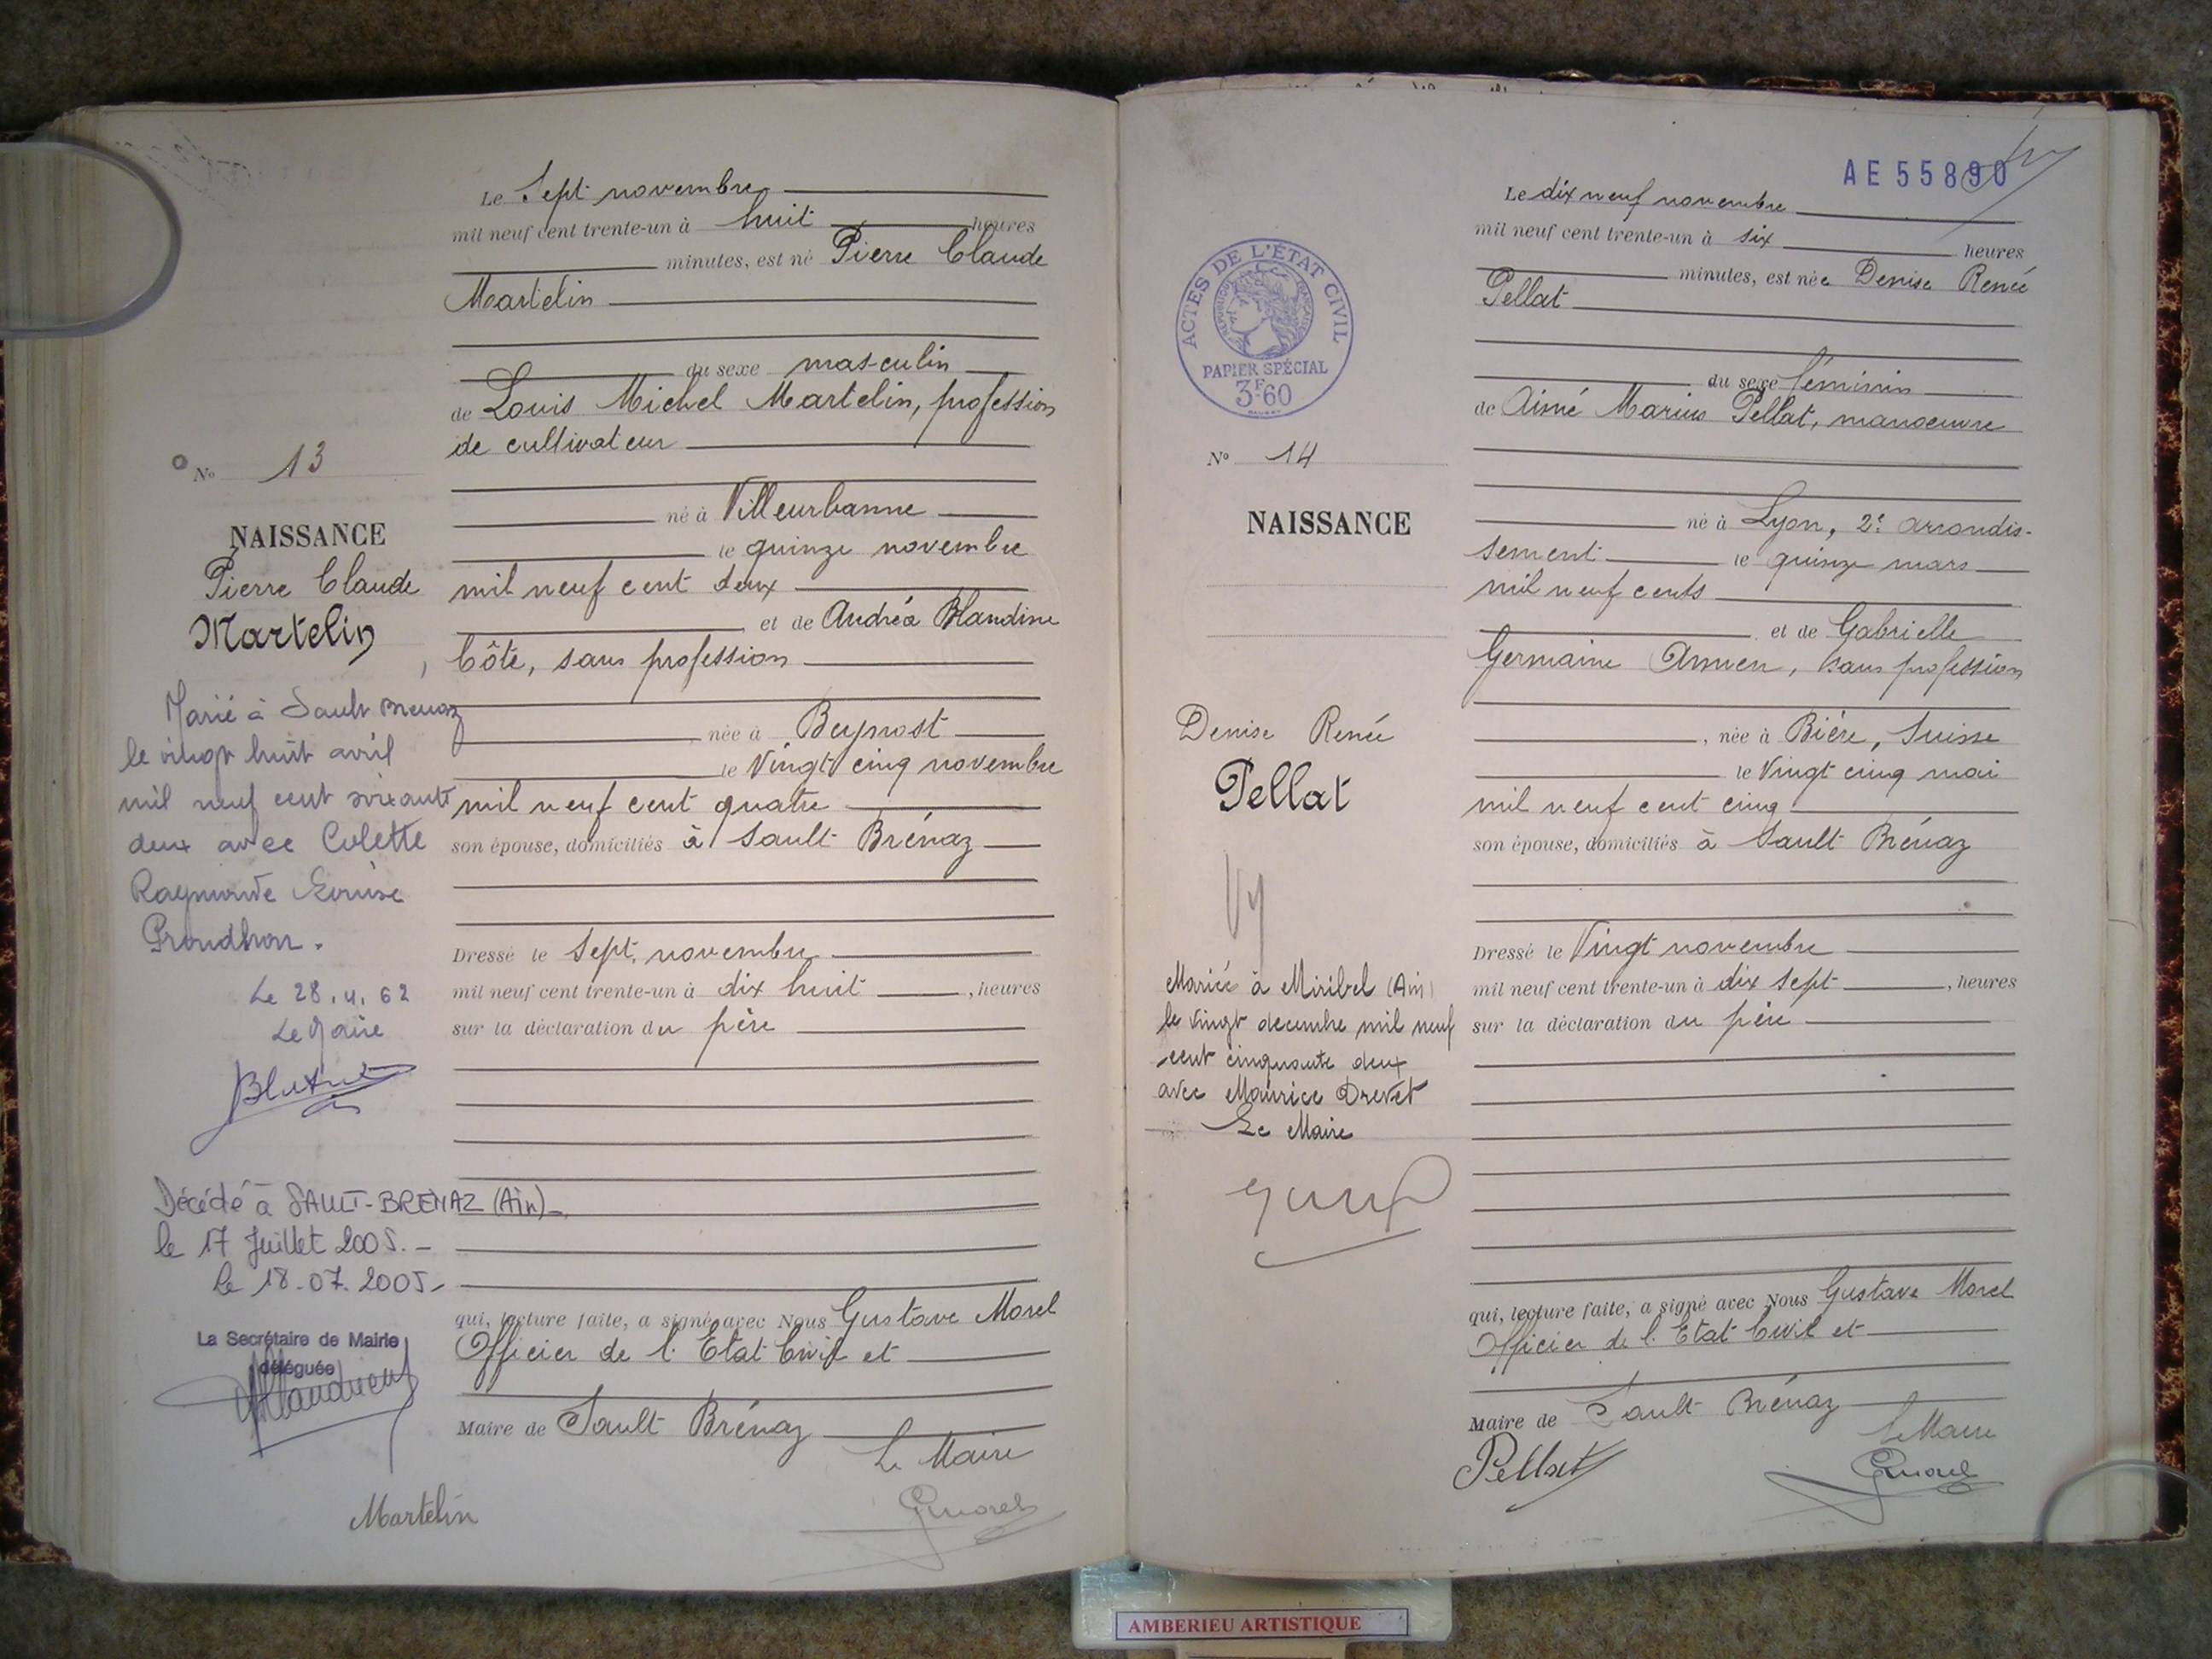 Le Sept novembre
mil neuf cent trente-un à huit heures
minutes, est né Pierre Claude
Martelin
du sexe masculin
de Louis Michel Martelin, profession
de cultivateur
né à Villeurbanne
le quinze novembre
mil neuf cent deux
et de Andréa Blandine
Côte, sans profession
née à Beynost
le Vingt cinq novembre
mil neuf cent quatre
son épouse, domiciliés à Sault Brénaz
Dressé le Sept novembre
mil neuf cent trente-un à dix huit , heures
sur la déclaration du père
qui, lecture faite, a signé avec Nous Gustave Morel
Officier de l'Etat Civil et
Maire de Sault Brénaz
Le Maire
Martelin
GMorel
No 13
NAISSANCE
Pierre Claude
Martelin
Marié à Sault Brenaz
le vingt huit avril
mil neuf cent soixante
deux avec Colette
Raymonde Louise
Proudhon.
Le 28.4.62
Le Maire
Décédé à SAULT-BRENAZ (Ain)
le 17 Juillet 2005.-
Le 18-07-2005-
La Secrétaire de Mairie
déléguée
AE 55890
Le dix neuf novembre
mil neuf cent trente-un à six heures
minutes, est née Denise Renée
Pellat
du sexe féminin
de Aimé Marius Pellat, manoeuvre
né à Lyon, 2e arrondis-
sement le quinze mars
mil neuf cents
et de Gabrielle
Germaine , sans profession
, née à Bière, Suisse
le Vingt cinq mai
mil neuf cent cinq
son épouse, domiciliés à Sault Brénaz
Dressé le Vingt novembre
mil neuf cent trente-un à dix sept , heures
sur la déclaration du père
qui, lecture faite, a signé avec Nous Gustave Morel
Officier de l'Etat Civil et
Maire de Sault Brénaz
Le Maire
Pellat
GMorel
ACTES DE L'ÉTAT CIVIL
RÉPUBLIQUE FRANÇAISE
PAPIER SPÉCIAL
3F60
No 14
NAISSANCE
Denise Renée
Pellat
Mariée à Miribel (Ain)
le vingt decembre mil neuf
cent cinquante deux
avec Maurice Drevet
Le Maire
AMBERIEU ARTISTIQUE